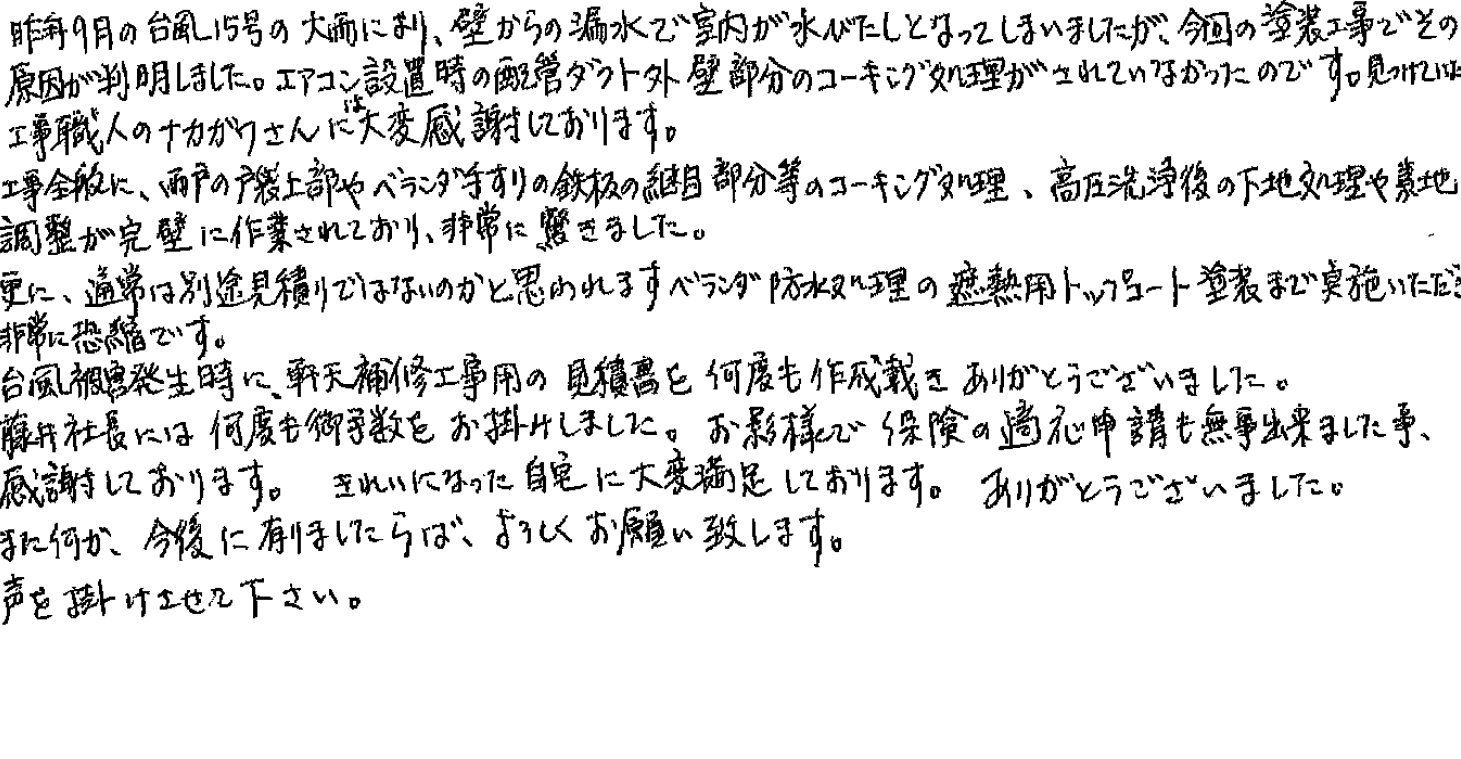 昨年9月の台風15号の大雨により、壁からの漏水で室内が水びたしとなってしまいましたが、今回の塗装工事でその
原因が判明しました。エアコン設置時の配管ダクト外壁部分のコーキング処理がされていなかったのです。見つけていた
工事職人のナカガワさんには大変感謝しております。
工事全般に、雨戸の戸袋上部やベランダ手すりの鉄板の継目部分等のコーキング処理、高圧洗浄後の下地処理や素地
調整が完璧に作業されており、非常に驚きました。
更に、通常は別途見積りではないのかと思われますベランダ防水処理の遮熱用トップコート塗装まで実施いただき
非常に恐縮です。
台風被害発生時に、軒天補修工事用の見積書を何度も作成戴きありがとうございました。
藤井社長には何度も御手数をお掛けしました。お影様で保険の適応申請も無事出来ました事、
感謝しております。 きれいになった自宅に大変満足しております。 ありがとうございました。
また何か、今後に有りましたらば、よろしくお願い致します。
声を掛けさせて下さい。